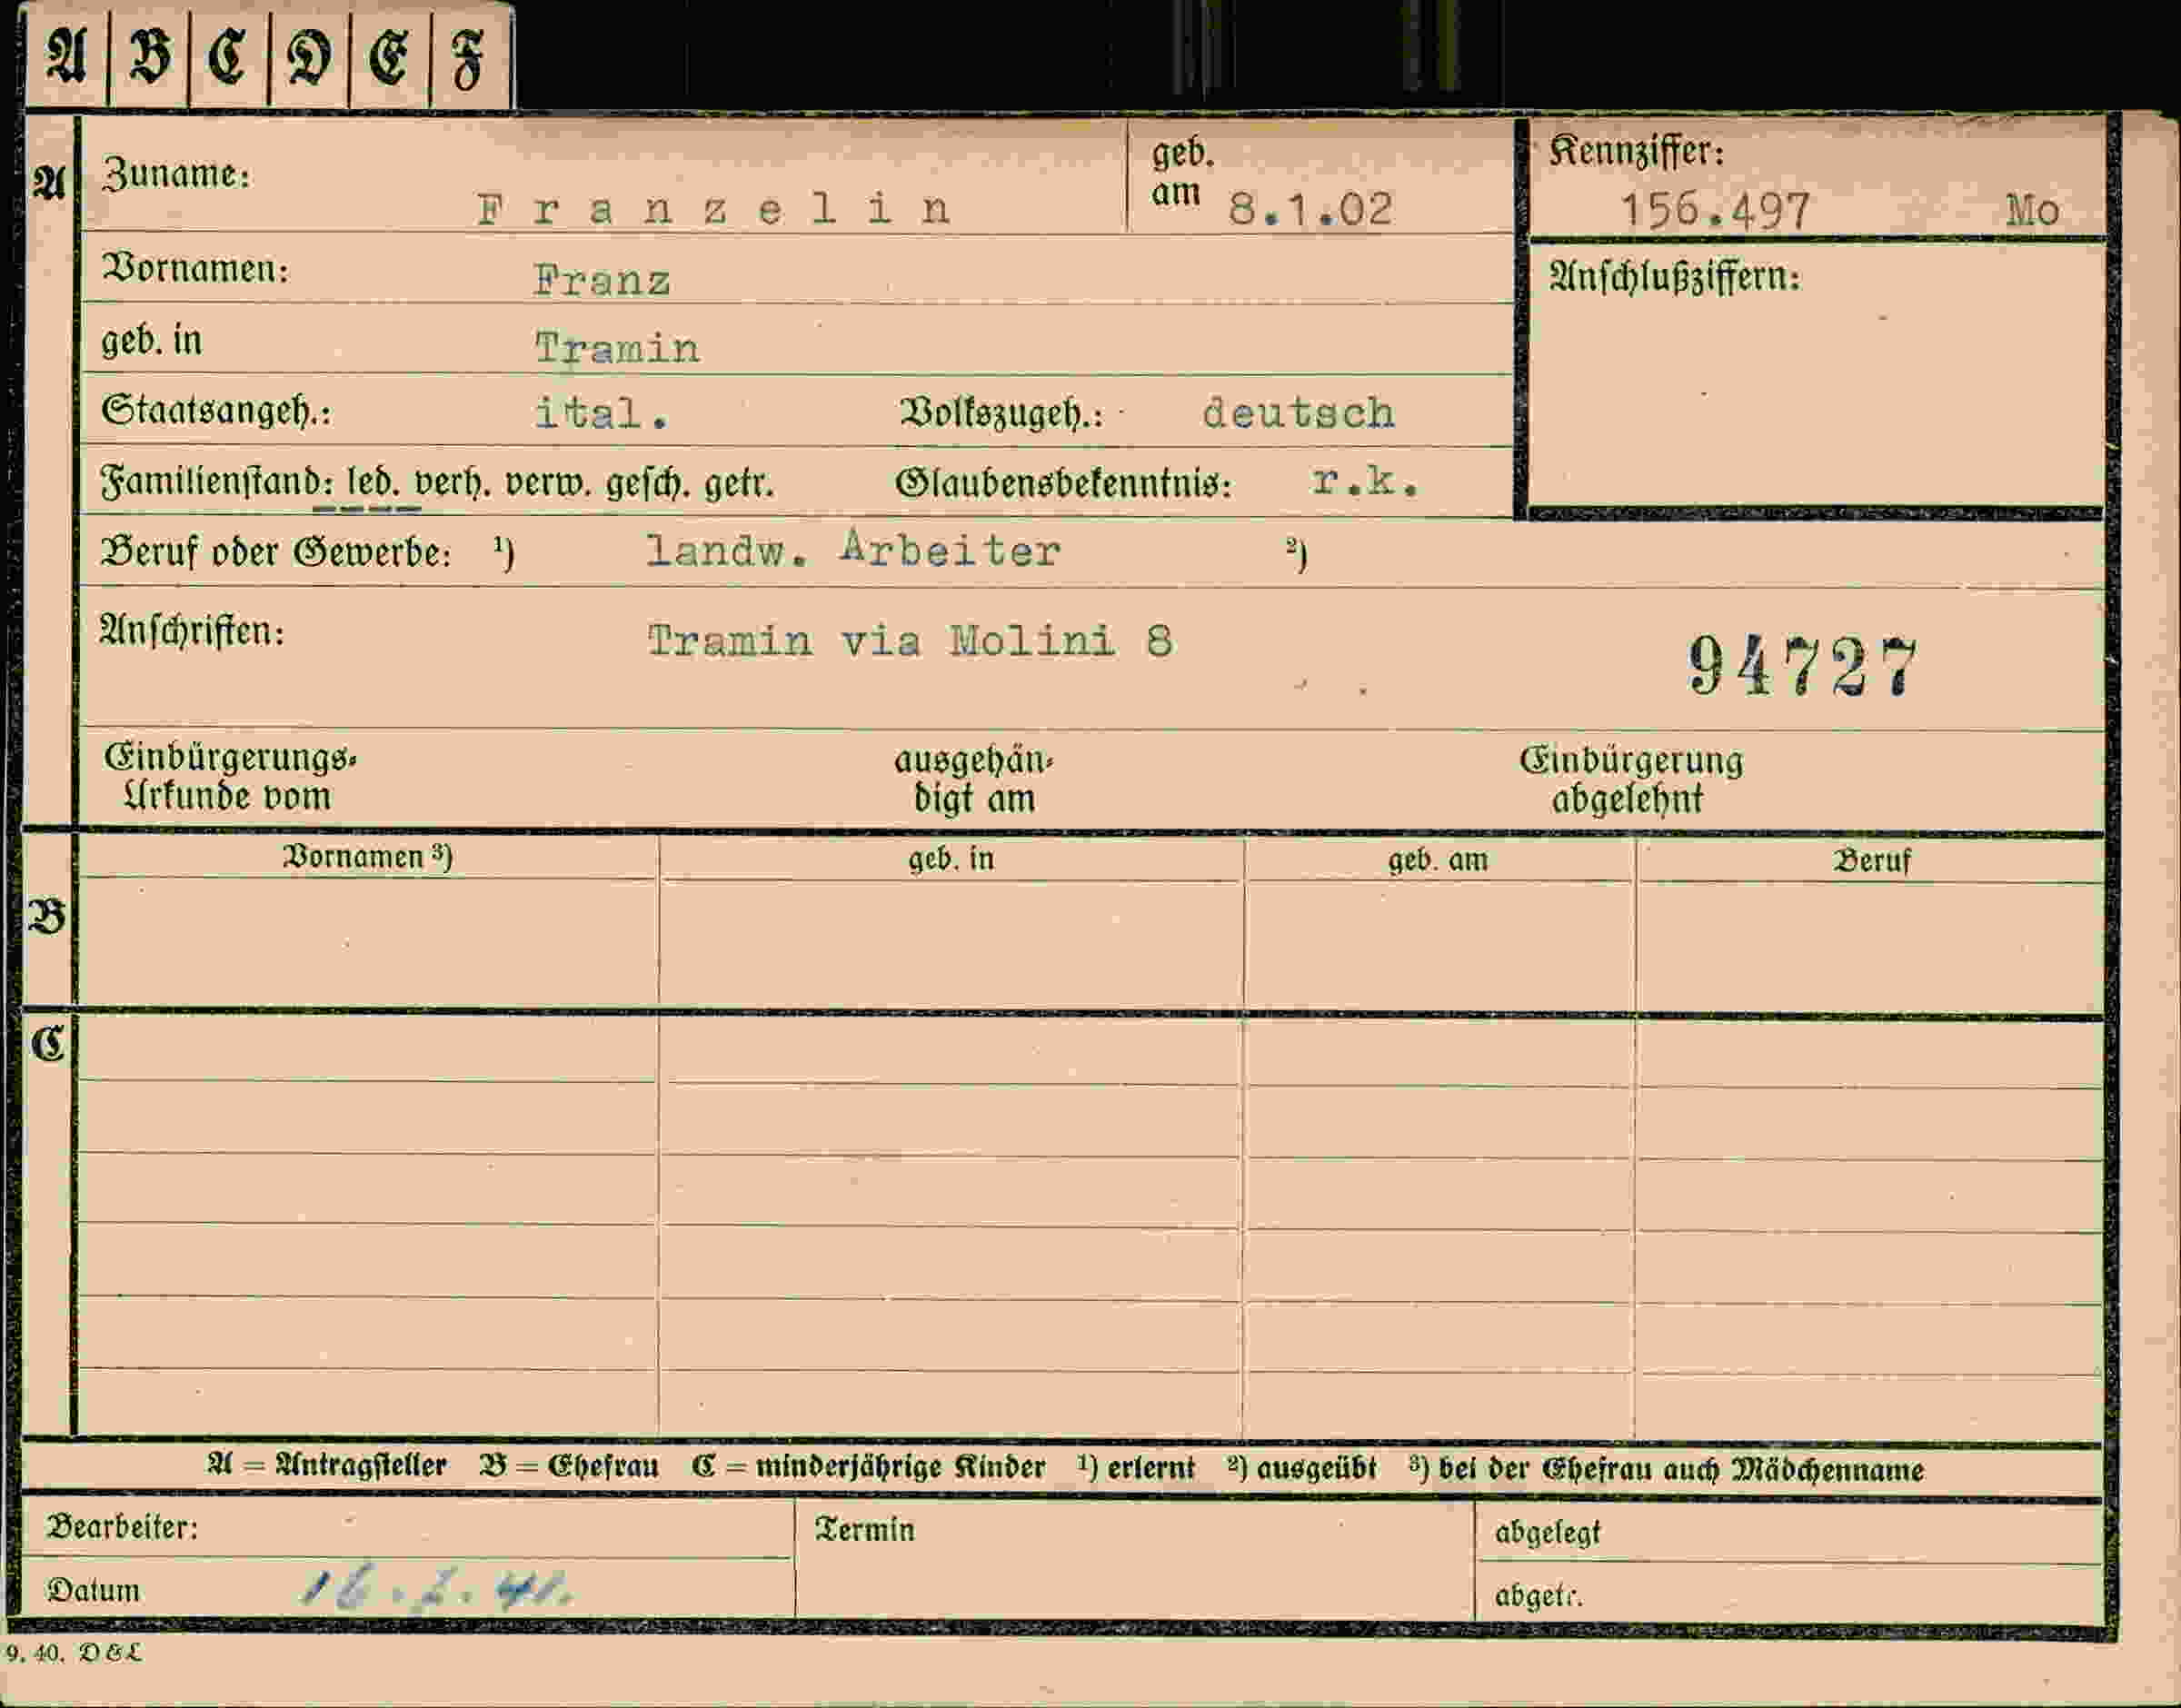 A B C D E F
A Zuname: Franzelin geb. am 8.1.02 Kennziffer: 156.497 Mo
Vornamen: Franz Anschlußziffern:
geb. in Tramin
Staatsangeh.: ital. Volkszugeh.: deutsch
Familienstand: led. verh. verw. gesch. getr. Glaubensbekenntnis: r.k.
Beruf oder Gewerbe: ¹) landw. Arbeiter ²)
Anschriften: Tramin via Molini 8 94727
Einbürgerungs- ausgehän- Einbürgerung
Urkunde vom digt am abgelehnt
Vornamen ³) geb. in geb. am Beruf
B
C
A = Antragsteller B = Ehefrau C = minderjährige Kinder ¹) erlernt ²) ausgeübt ³) bei der Ehefrau auch Mädchenname
Bearbeiter: Termin abgelegt
Datum abgetr.
9. 40. D&L